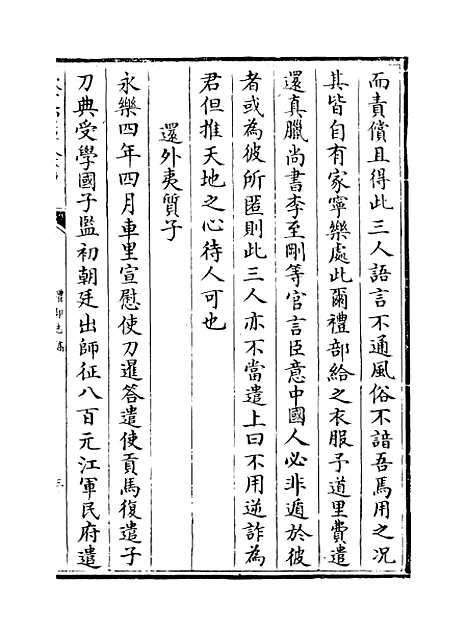 而責償且得此三人語言不通風俗不諳吾焉用之况
其皆自有家寧樂處此爾禮部給之衣服予道里費遣
還真臘尚書李至剛等官言臣意中國人必非遁於彼
者或為彼所匿則此三人亦不當遣上曰不用逆詐為
君但推天地之心待人可也
還外夷質子
永樂四年四月車里宣慰使刀暹答遣使貢馬復遣子
刀典受學國子監初朝廷出師征八百元江軍民府遣
禮部志稿
三